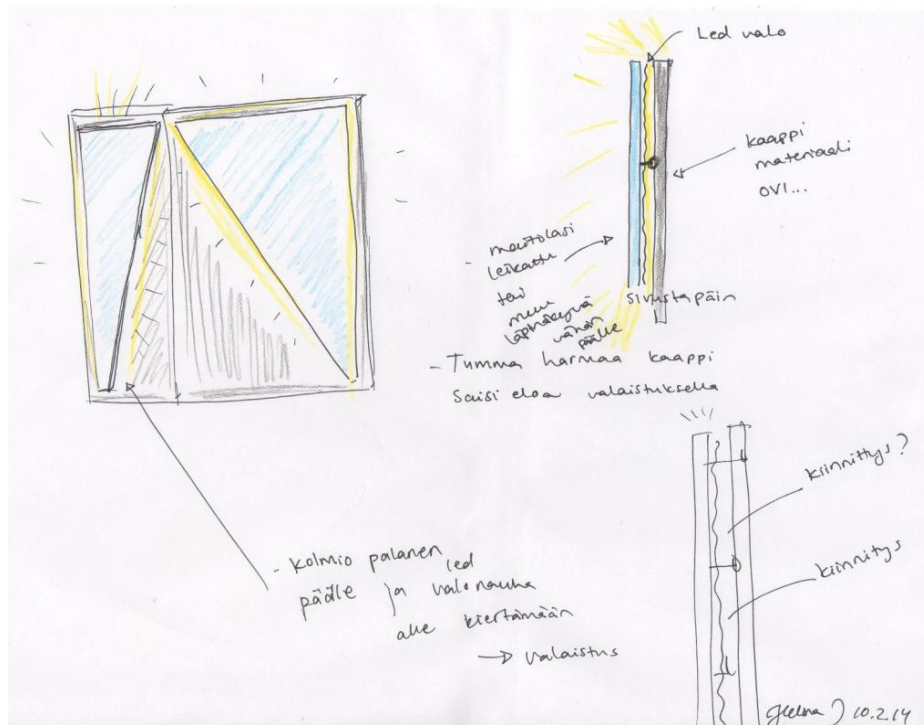 Led valo
kaappi
materiaali
OVI...
maitolasi
leikattu
tai
muu
läpinäkyvä
vähän
päälle
sivustapäin
- Tumma harmaa kaappi
saisi eloa valaistuksella
kiinnitys?
kiinnitys
- kolmio palanen
päälle ja led valonauha
alle kiertämään
→ valaistus
10.2.14